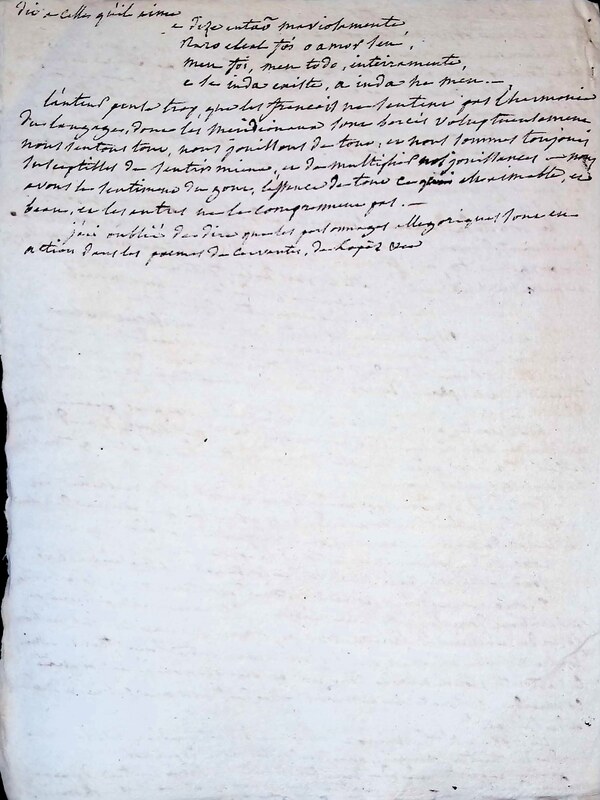 dit a celles qu'il aime
e dize entaõ maviosamente
Raro e leal foi o amor seu,
meu foi, meu todo, inteiramente,
e se inda existe, a inda he meu. —
l'auteur pense trop, que les francois ne sentent pas l'harmonie
des langages, dont les meridionaux sont bercés voluptueusement
nous sentons tout, nous jouissons de tout, et nous sommes toujours
susceptibles de sentir mieux, et de multiplier nos jouissances — nous
avons le sentiment du gout, l'essence de tout ce qui est aimable, et
beau, et les autres ne le comprennent pas. —
j'ai oublié de dire que les personnages allegoriques sont en
action dans les poemes de Cervantes, de Lopèz &ca